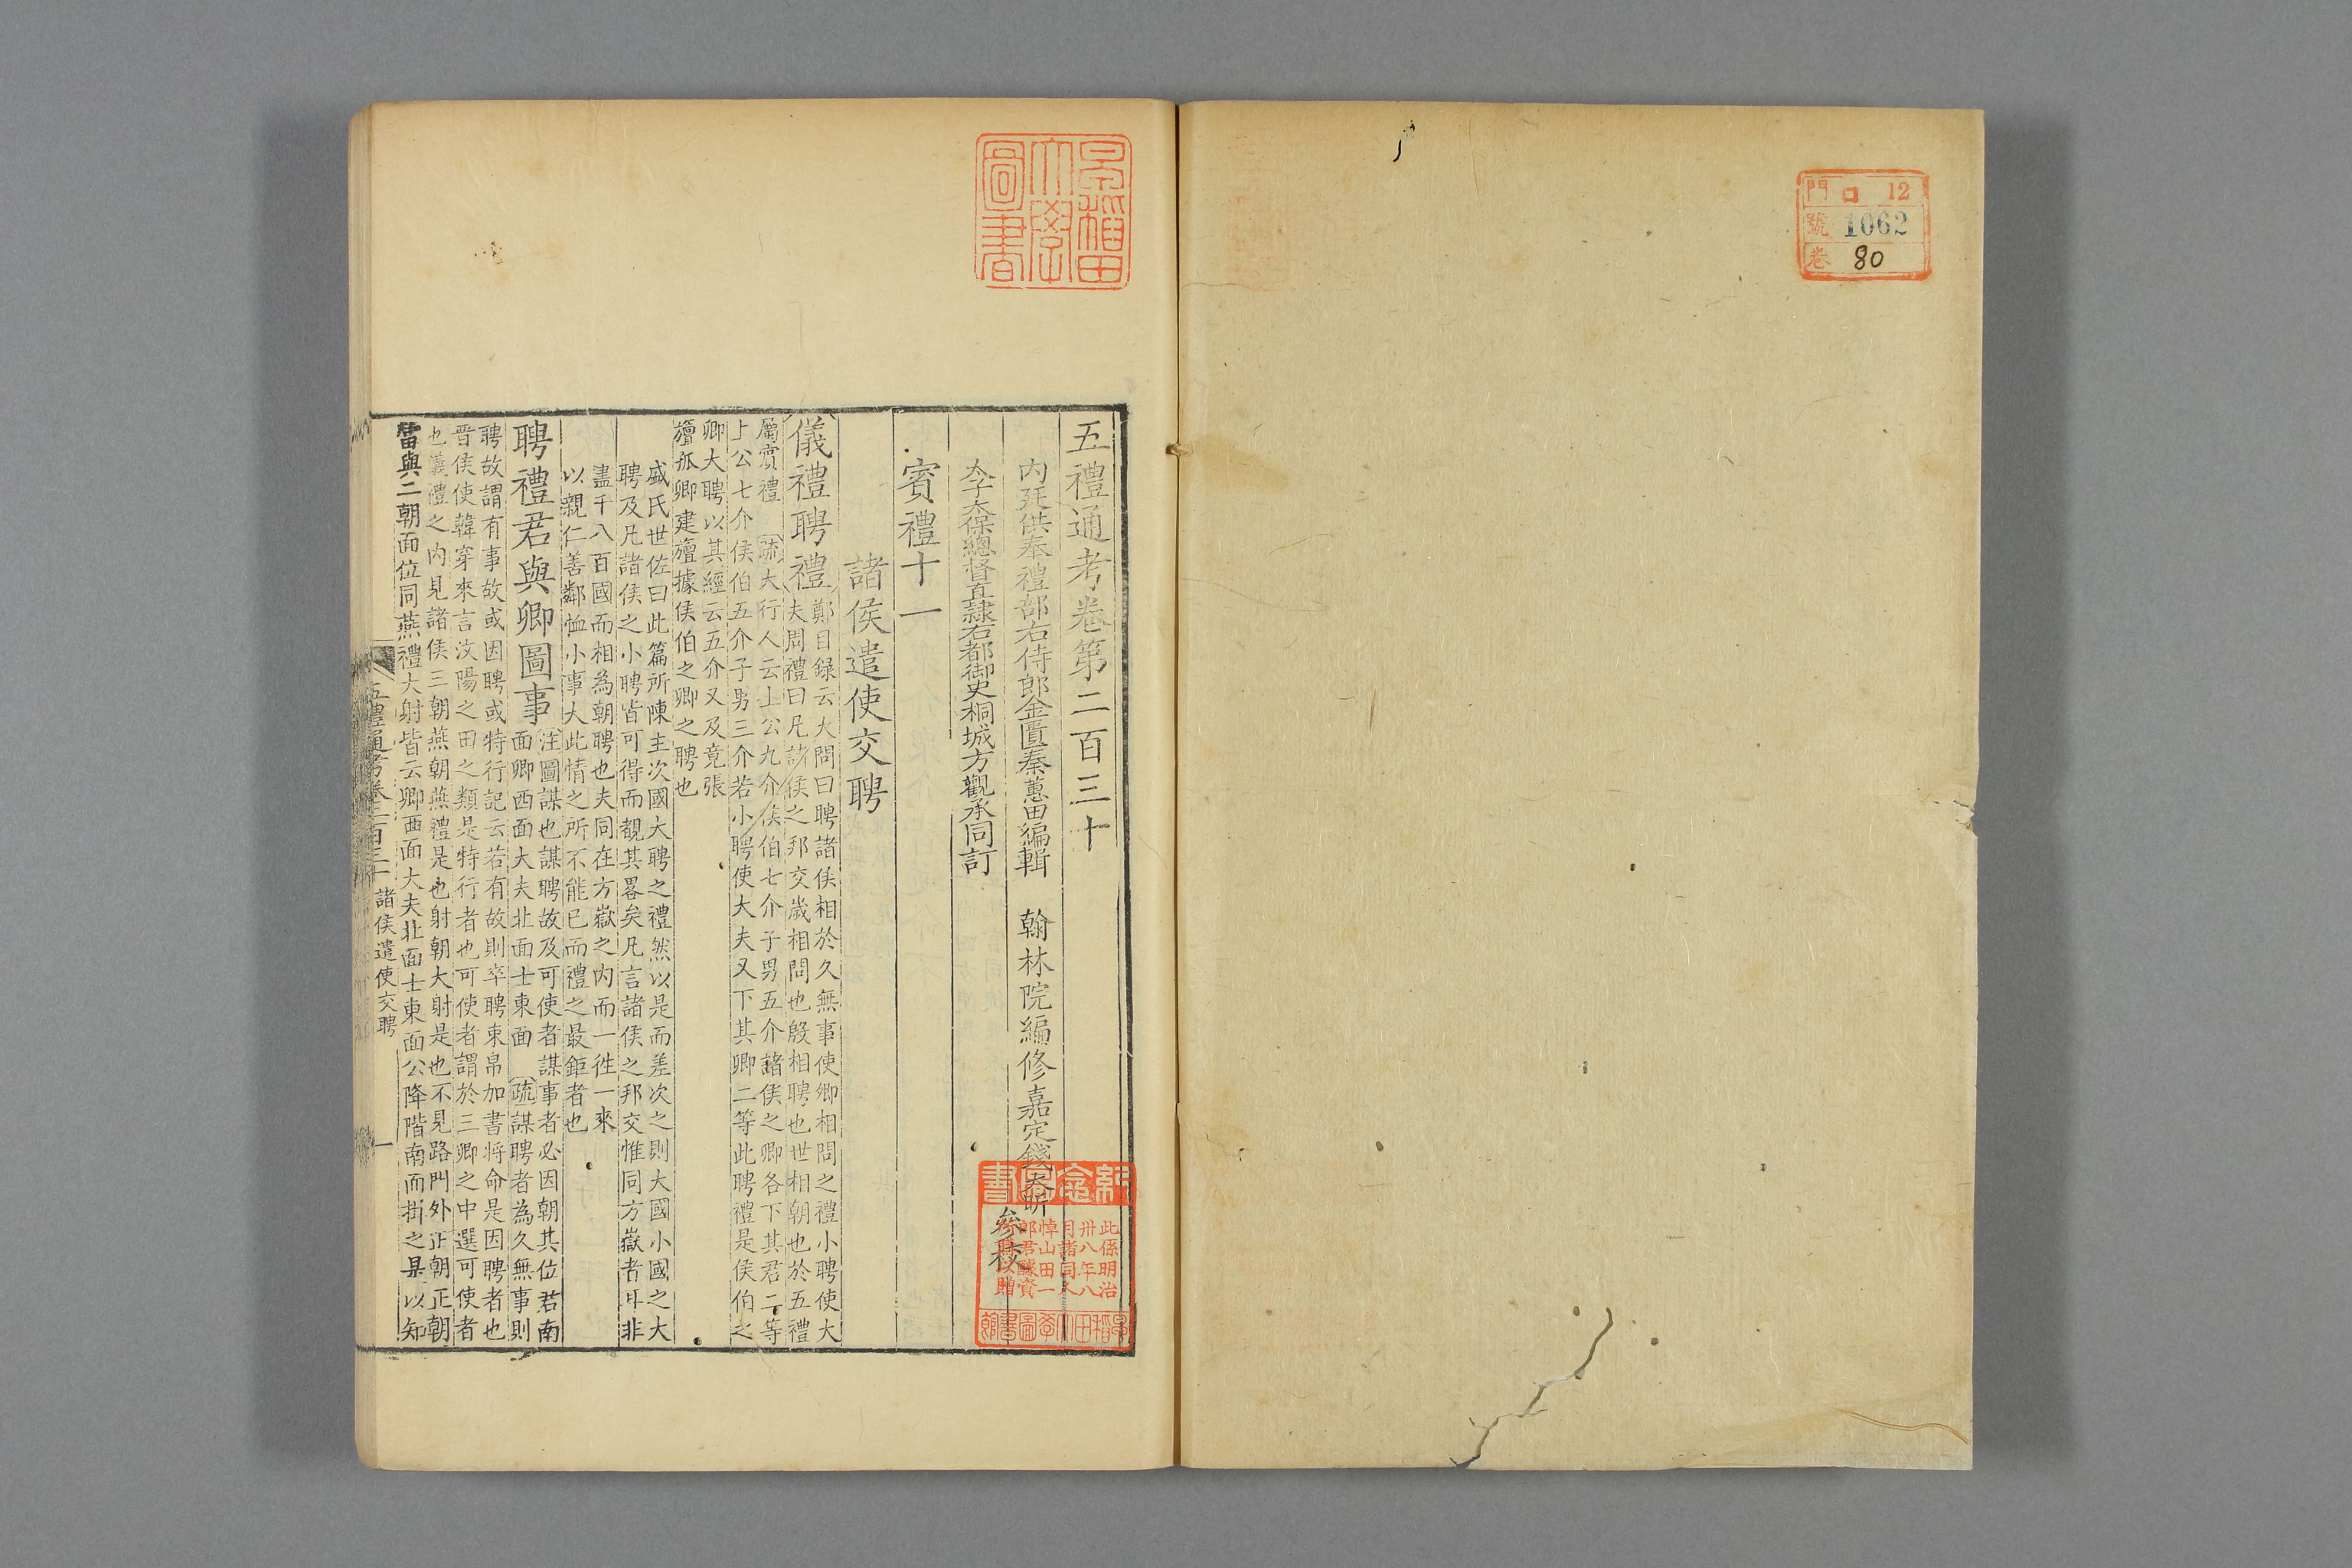 門 ロ 12
號 1062
卷 80
早稲田大學圖書
五禮通考卷第二百三十
内廷供奉禮部右侍郎金匱秦蕙田編輯 翰林院編修嘉定錢大昕
太子太保總督直隸右都御史桐城方觀承同訂 參校
賓禮十一
諸侯遣使交聘
儀禮聘禮
鄭目録云大問曰聘諸侯相於久無事使卿相問之禮小聘使大
夫周禮曰凡諸侯之邦交歲相問也殷相聘也世相朝也於五禮
屬賓禮 疏大行人云上公九介侯伯七介子男五介諸侯之卿各下其君二等
上公七介侯伯五介子男三介若小聘使大夫又下其卿二等此聘禮是侯伯之
卿大聘以其經云五介又及竟張
旜孤卿建旜據侯伯之卿之聘也
盛氏世佐曰此篇所陳主次國大聘之禮然以是而差次之則大國小國之大
聘及凡諸侯之小聘皆可得而覩其畧矣凡言諸侯之邦交惟同方嶽者耳非
盡千八百國而相為朝聘也夫同在方嶽之内而一徃一來
以親仁善鄰恤小事大此情之所不能已而禮之最鉅者也
聘禮君與卿圖事
注圖謀也謀聘故及可使者謀事者必因朝其位君南
面卿西面大夫北面士東面 疏謀聘者為久無事則
聘故謂有事故或因聘或特行記云若有故則卒聘束帛加書將命是因聘者也
晋侯使韓穿來言汶陽之田之類是特行者也可使者謂於三卿之中選可使者
也儀禮之内見諸侯三朝燕朝燕禮是也射朝大射是也不見路門外正朝正朝
當與二朝面位同燕禮大射皆云卿西面大夫北面士東面公降階南面揖之是以知
五禮通考卷二百三十 諸侯遣使交聘 一
紀念圖書
此係明治
卅八年八
月諸同人
悼山田一
郎君醵資
以贈
早稲田大學圖書館